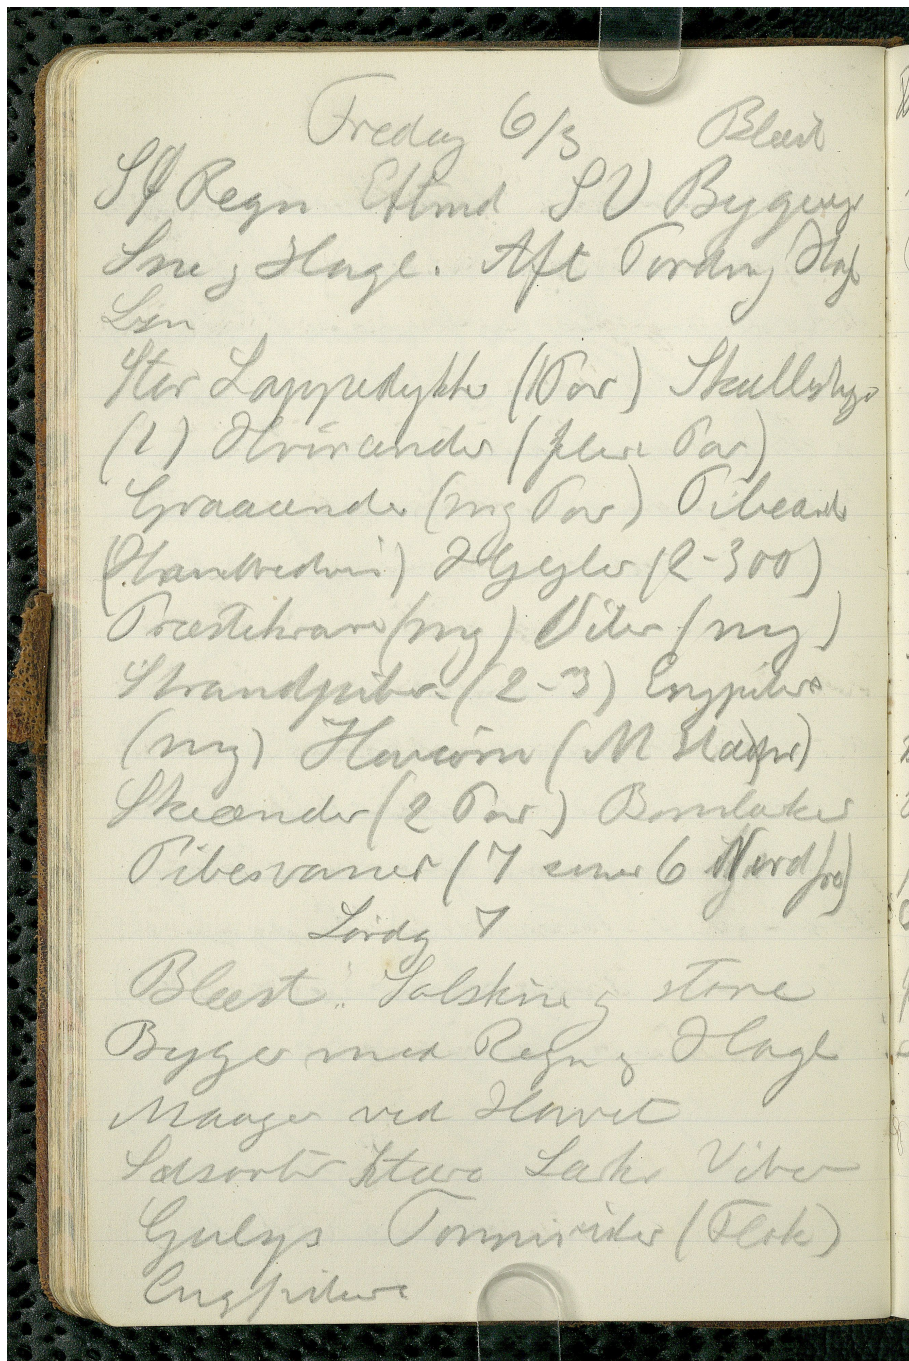 Fredag 6/3 Blæst
SØ Regn Eftmd SV Byger
Sne og Hagl. Aft Torden Hagl
Lyn
Stor Lappedykker (1 Par) Skallesluger
(1) Hvinænder (flere Par)
Graaænder (mg Par) Pibeænder
(Hundredvis) Hjejler (2-300)
Præstekrave (mg) Viber (mg)
Strandpiber (2-3) Engpibere
(mg) Havørn (M
Skeænder (2 Par) Bomlærker
Pibesvaner (7 senere 6 Nord fra)
Lørdag 7
Blæst. Solskin og store
Byger med Regn og Hagl
Maager ved Havet
Solsorte Stære Lærker Viber
Gulsps Tornirisker (Flok)
Engpibere